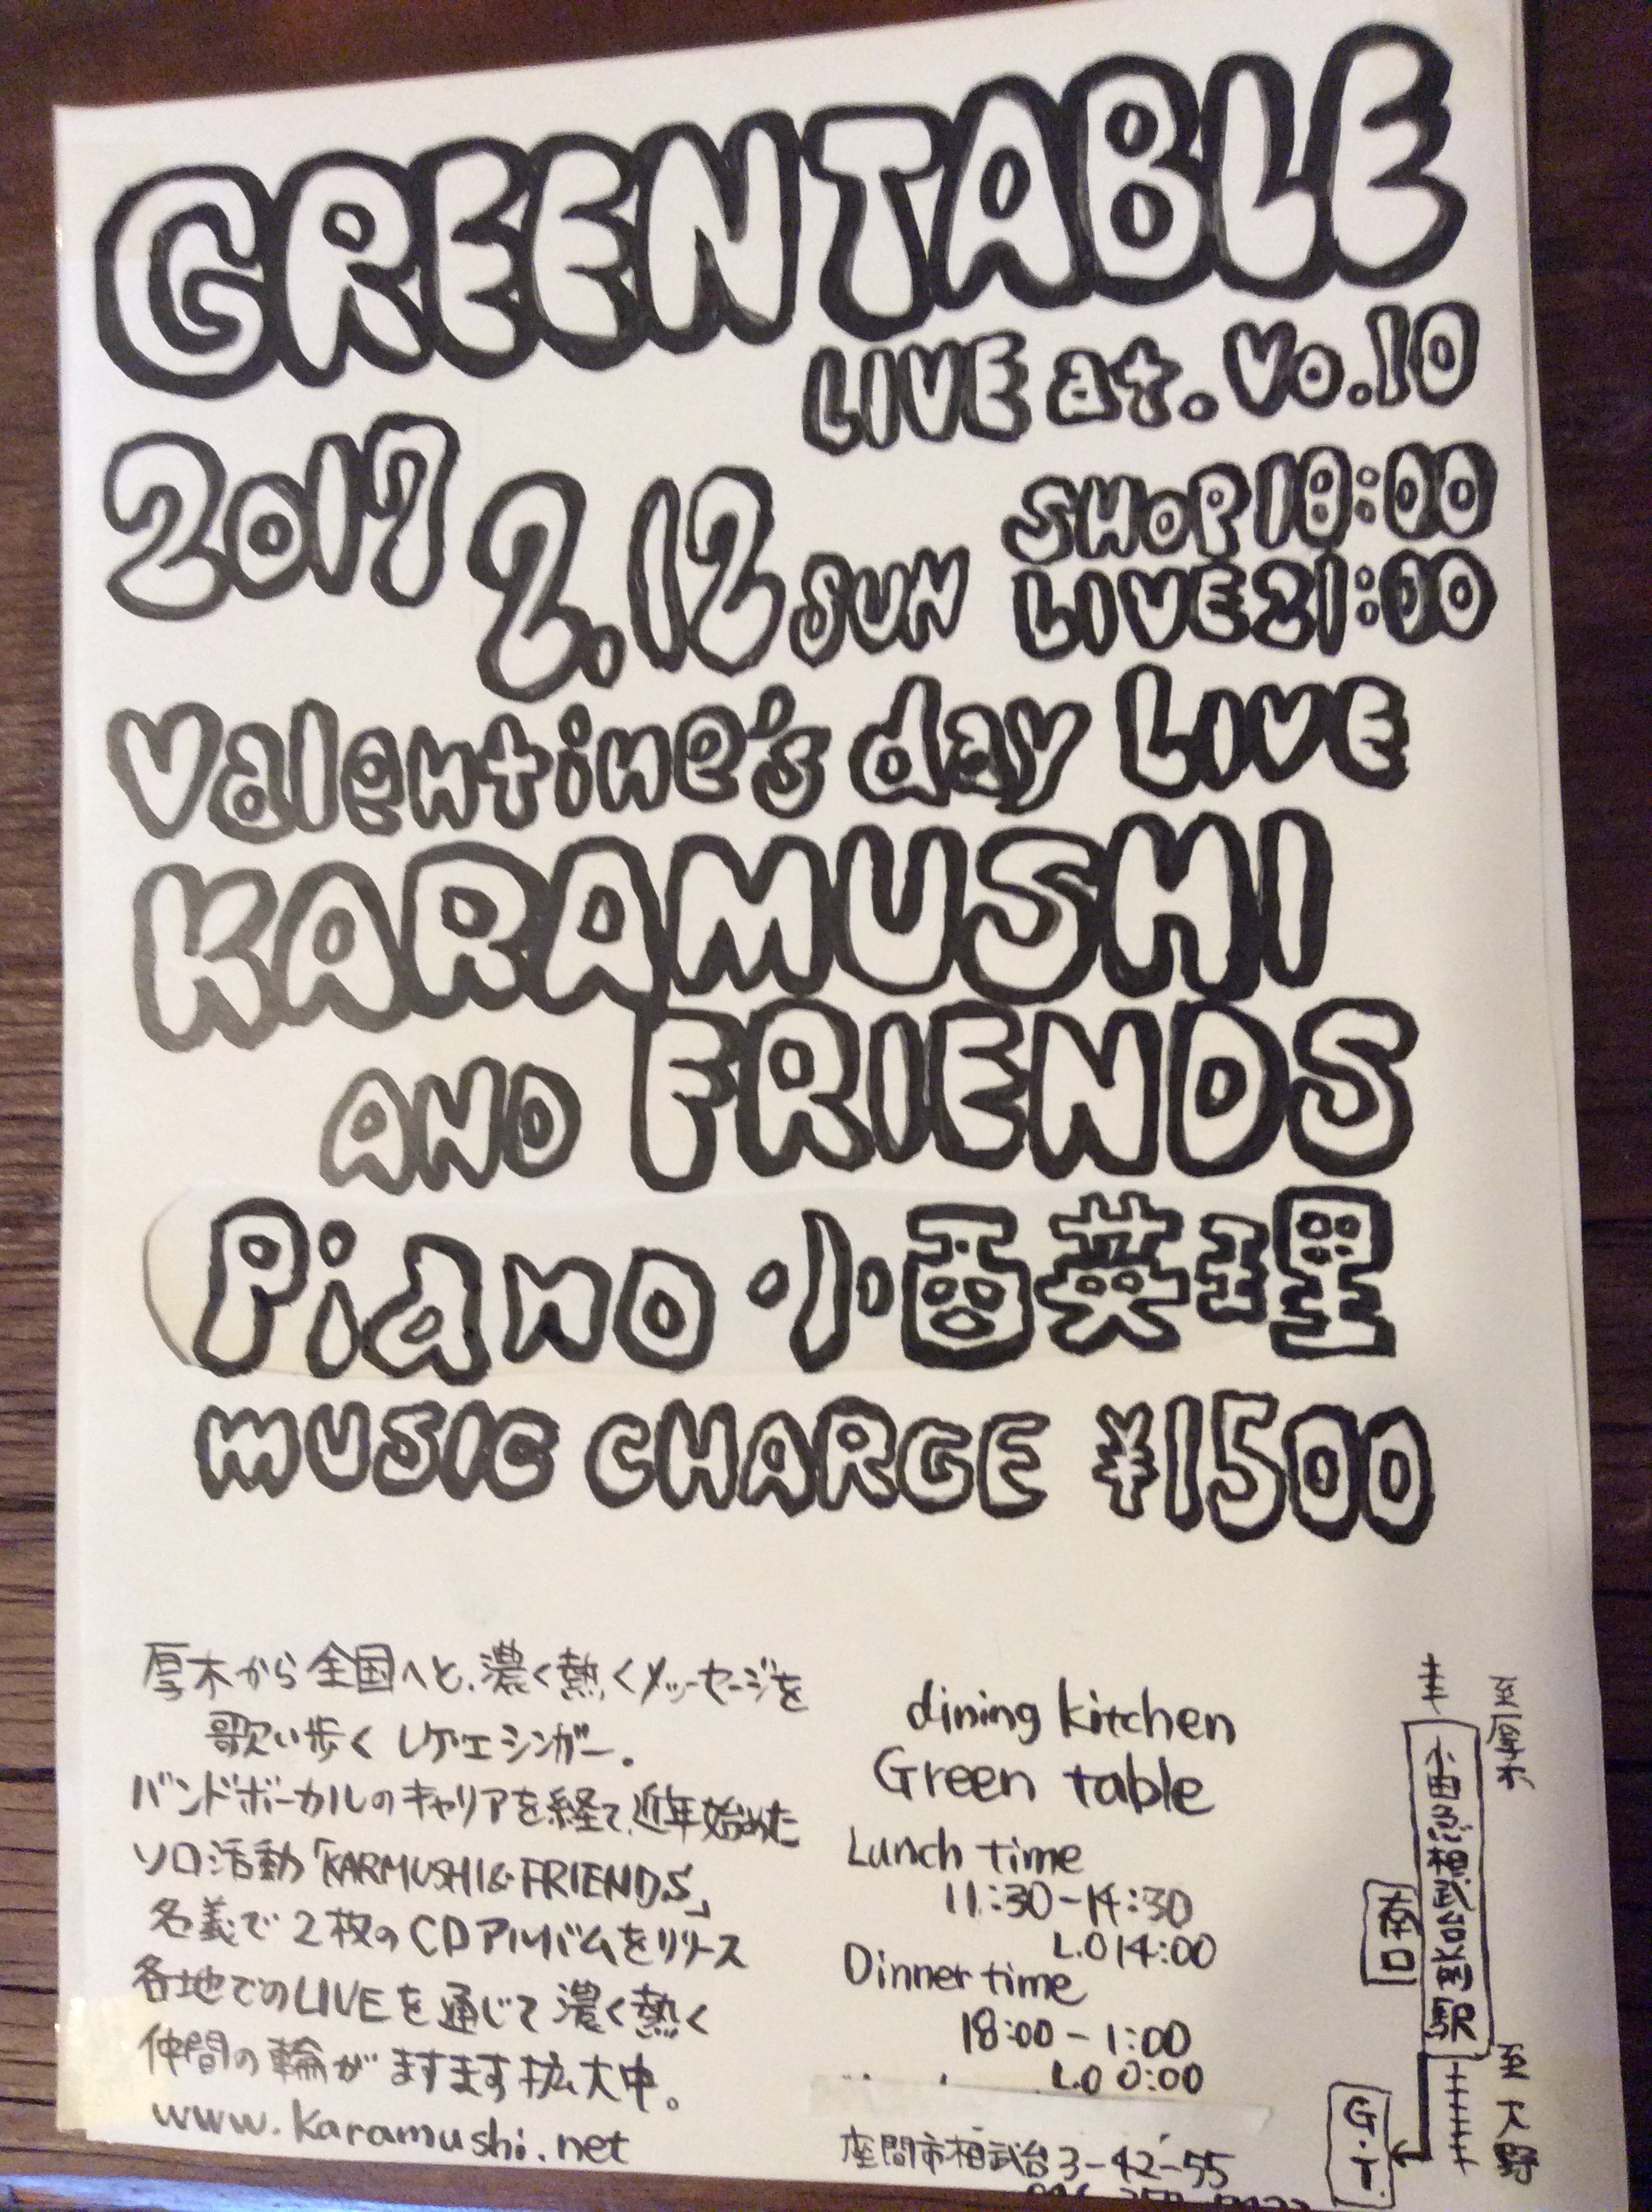 GREEN TABLE
LIVE at. Vo.10
2017 2.12 SUN
SHOP 18:00
LIVE 21:00
Valentine's day LIVE
KARAMUSHI
AND FRIENDS
Piano 小西英理
MUSIC CHARGE ¥1500
厚木から全国へと、濃く熱くメッセージを
歌い歩くレゲエシンガー。
バンドボーカルのキャリアを経て、近年始めた
ソロ活動「KARMUSHI&FRIENDS」
名義で2枚のCDアルバムをリリース
各地でのLIVEを通じて濃く熱く
仲間の輪がますます拡大中。
www.karamushi.net
dining kitchen
Green table
Lunch time
11:30-14:30
L.O 14:00
Dinner time
18:00-1:00
L.O 0:00
座間市相武台3-42-55
至厚木
小田急相武台前駅
至大野
G.T